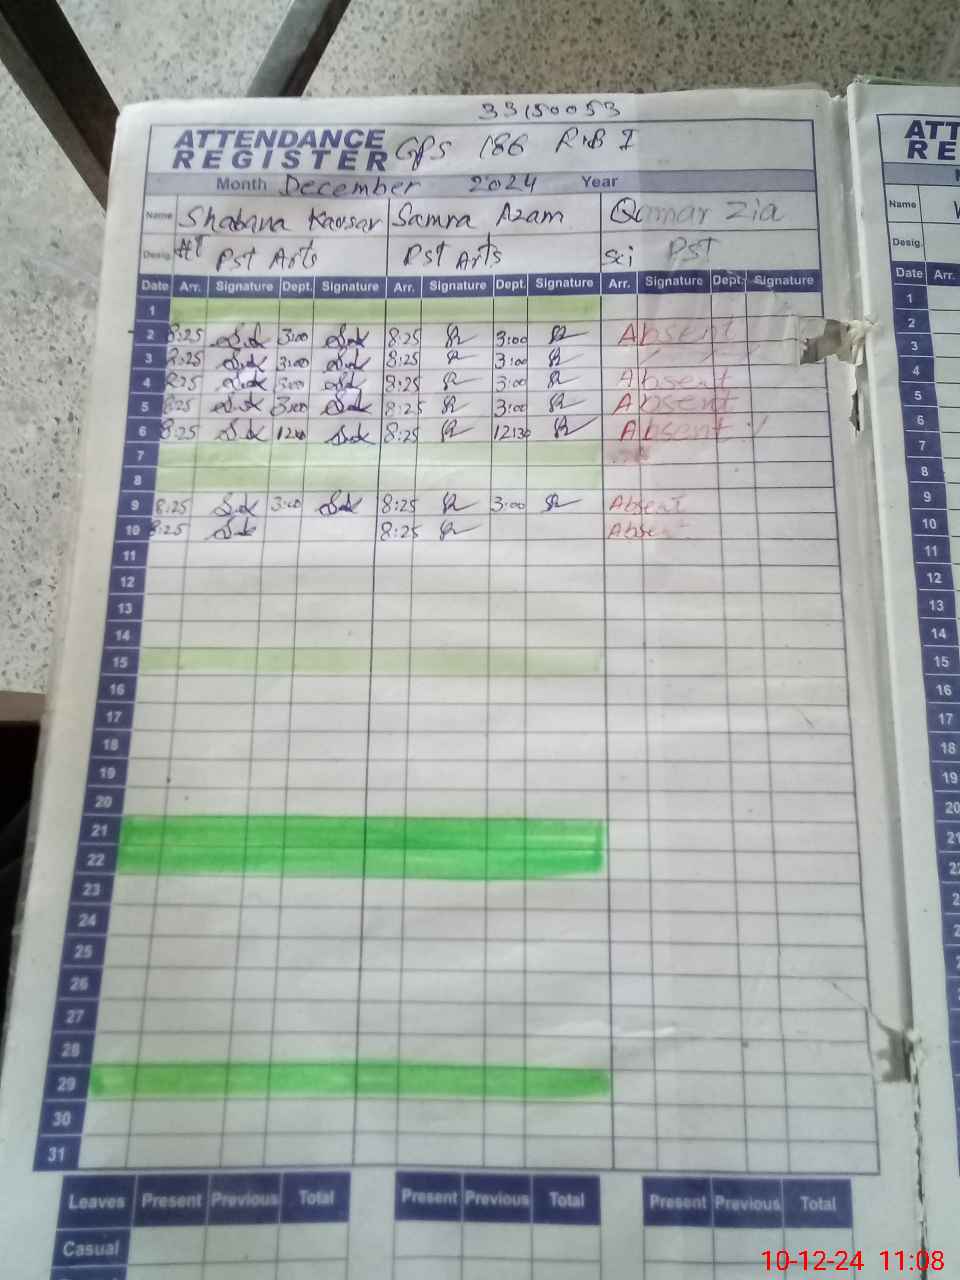 33150053
ATTENDANCE REGISTER GPS 186 R.B I
Month December 2024 Year
Name Shabana Kaosar Samra Azam Qamar Zia
Desig. Pst Arts Pst Arts Sci Pst
Date Arr. Signature Dept. Signature Arr. Signature Dept. Signature Arr. Signature Dept. Signature
1
2 8:25 3:00 8:25 3:00 Absent
3 8:25 3:00 8:25 3:00
4 8:25 3:00 8:25 3:00 Absent
5 8:25 3:00 8:25 3:00 Absent
6 8:25 8:25 12:30 Absent
7
8
9 8:25 3:00 8:25 3:00 Absent
10 8:25 8:25 Absent
11
12
13
14
15
16
17
18
19
20
21
22
23
24
25
26
27
28
29
30
31
Leaves Present Previous Total Present Previous Total Present Previous Total
Casual
ATT
RE
Name
Desig.
Date Arr.
1
2
3
4
5
6
7
8
9
10
11
12
13
14
15
16
17
18
19
20
21
10-12-24 11:08